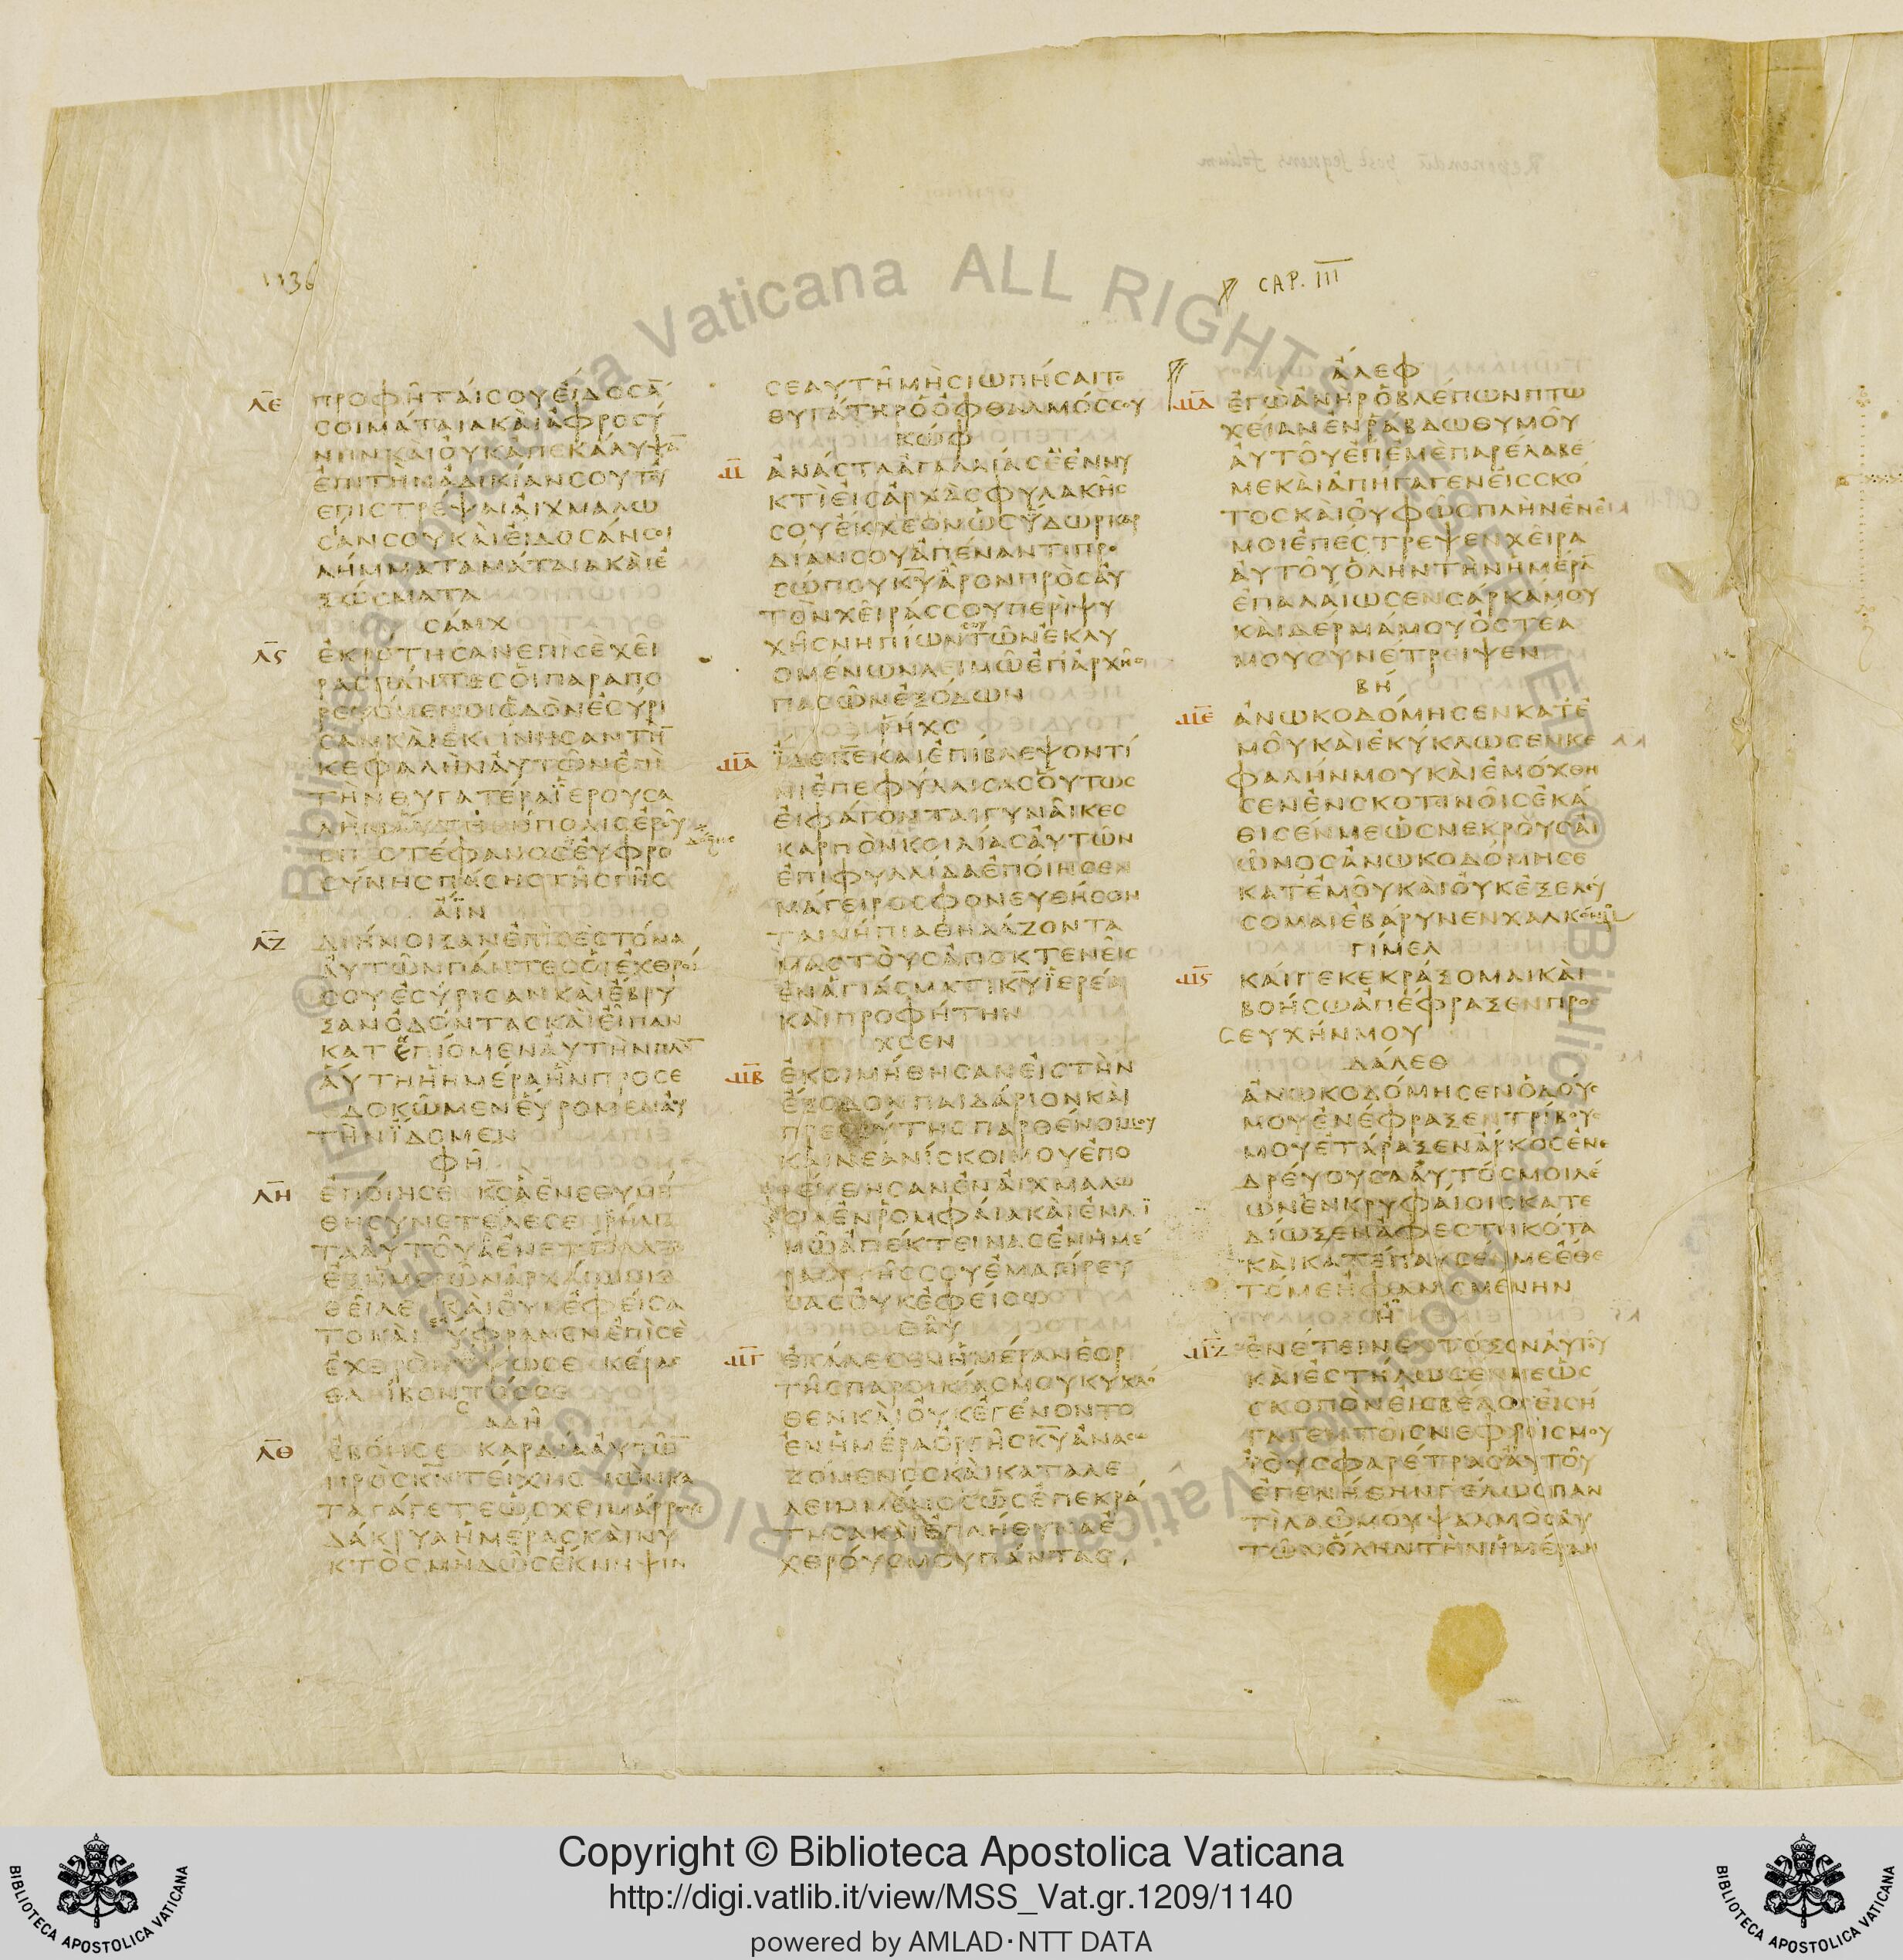 1136
CAP. III
ΛΕ
ΠΡΟΦΗΤΑΙΣΟΥΕΙΔΟΣΑ̅
ΣΟΙΜΑΤΑΙΑΚΑΙΑΦΡΟΣΥ
ΝΗΝΚΑΙΟΥΚΑΠΕΚΑΛΥΨΑ̅
ΕΠΙΤΗΝΑΔΙΚΙΑΝΣΟΥΤΟΥ
ΕΠΙΣΤΡΕΨΑΙΑΙΧΜΑΛΩ
ΣΙΑΝΣΟΥΚΑΙΕΙΔΟΣΑΝΣΟΙ
ΛΗΜΜΑΤΑΜΑΤΑΙΑΚΑΙΕ
ΞΩΣΜΑΤΑ
ΣΑΜΧ
Λϛ
ΕΚΡΟΤΗΣΑΝΕΠΙΣΕΧΕΙ
ΡΑΣΠΑΝΤΕΣΟΙΠΑΡΑΠΟ
ΡΕΥΟΜΕΝΟΙΟΔΟΝΕΣΥΡΙ
ΣΑΝΚΑΙΕΚΙΝΗΣΑΝΤΗ̅
ΚΕΦΑΛΗΝΑΥΤΩΝΕΠΙ
ΤΗΝΘΥΓΑΤΕΡΑΙΕΡΟΥΣΑ
ΛΗΜΑΥΤΗΗΠΟΛΙΣΕΡΟΥ
ΣΙΣΤΕΦΑΝΟΣΕΥΦΡΟ
ΣΥΝΗΣΠΑΣΗΣΤΗΣΓΗΣ
ΑΙΝ
ΛΖ
ΔΙΗΝΟΙΞΑΝΕΠΙΣΕΣΤΟΜΑ
ΑΥΤΩΝΠΑΝΤΕΣΟΙΕΧΘΡΟΙ
ΣΟΥΕΣΥΡΙΣΑΝΚΑΙΕΒΡΥ
ΞΑΝΟΔΟΝΤΑΣΚΑΙΕΙΠΑΝ
ΚΑΤΕΠΙΟΜΕΝΑΥΤΗΝΠΛΗ̅
ΑΥΤΗΗΗΜΕΡΑΗΝΠΡΟΣΕ
ΔΟΚΩΜΕΝΕΥΡΟΜΕΝΑΥ
ΤΗΝΙΔΟΜΕΝ
ΦΗ
ΛΗ
ΕΠΟΙΗΣΕ Κ̅Σ̅ΑΕΝΕΘΥΜΗ
ΘΗΣΥΝΕΤΕΛΕΣΕ ΡΗΜΑ
ΤΑΑΥΤΟΥΑΕΝΕΤΕΙΛΑΤΟ
ΕΞΗΜΕΡΩΝΑΡΧΑΙΩΝ
ΘΕΙΛΕ ΚΑΙΟΥΚΕΦΕΙΣΑ
ΤΟΚΑΙ ΥΦΡΑΝΕΝΕΠΙΣΕ
ΕΧΘΡΟΝΥΨΩΣΕ ΚΕΡΑΣ
ΘΛΙΒΟΝΤΟΣΣΕ
ΣΑΔΗ
ΛΘ
ΕΒΟΗΣΕ ΚΑΡΔΙΑΑΥΤΩ̅
ΠΡΟΣΚ̅Ν̅ΤΕΙΧΗΣΙΩΝΚΑ
ΤΑΓΑΓΕΤΕΩΣΧΕΙΜΑΡΡΟΥΣ
ΔΑΚΡΥΑΗΜΕΡΑΣΚΑΙΝΥ
ΚΤΟΣΜΗΔΩΣΕΚΝΗΨΙΝ
ΣΕΑΥΤΗΜΗΣΙΩΠΗΣΑΙΤΟ
ΘΥΓΑΤΗΡΟΟΦΘΑΛΜΟΣΣΟΥ
ΚΩΦ
Μ
ΑΝΑΣΤΑΑΓΑΛΛΙΑΣΕΕΝΝΥ
ΚΤΙΕΙΣΑΡΧΑΣΦΥΛΑΚΗΣ
ΣΟΥΕΚΧΕΟΝΩΣΥΔΩΡΚΑΡ
ΔΙΑΝΣΟΥΑΠΕΝΑΝΤΙΠΡΟ
ΣΩΠΟΥΚ̅Υ̅ΑΡΟΝΠΡΟΣΑΥ
ΤΟΝΧΕΙΡΑΣΣΟΥΠΕΡΙΨΥ
ΧΗΣΝΗΠΙΩΝΤΩΝΕΚΛΥ
ΟΜΕΝΩΝΛΕΙΜΩΕΠΑΡΧΗΣ
ΠΑΣΩΝΕΞΟΔΩΝ
ΡΗΧΣ
ΜΑ
ΙΔΕΚ̅Ε̅ΚΑΙΕΠΙΒΛΕΨΟΝΤΙ
ΝΙΕΠΕΦΥΛΛΙΣΑΣΟΥΤΩΣ
ΕΙΦΑΓΟΝΤΑΙΓΥΝΑΙΚΕΣ
ΚΑΡΠΟΝΚΟΙΛΙΑΣΑΥΤΩΝ
ΕΠΙΦΥΛΛΙΔΑΕΠΟΙΗΣΕΝ
ΜΑΓΕΙΡΟΣΦΟΝΕΥΘΗΣΟΝ
ΤΑΙΝΗΠΙΑΘΗΛΑΖΟΝΤΑ
ΜΑΣΤΟΥΣΑΠΟΚΤΕΝΕΙΣ
ΕΝΑΓΙΑΣΜΑΤΙΚ̅Υ̅ΙΕΡΕΑ
ΚΑΙΠΡΟΦΗΤΗΝ
ΧΣΕΝ
ΜΒ
ΕΚΟΙΜΗΘΗΣΑΝΕΙΣΤΗΝ
ΕΞΟΔΟΝΠΑΙΔΑΡΙΟΝΚΑΙ
ΠΡΕΣΒΥΤΗΣΠΑΡΘΕΝΟΙΜΟΥ
ΚΑΙΝΕΑΝΙΣΚΟΙΜΟΥΕΠΟ
ΡΕΥΘΗΣΑΝΕΝΑΙΧΜΑΛΩ
ΣΙΑΕΝΡΟΜΦΑΙΑΚΑΙΕΝΛΙ
ΜΩΑΠΕΚΤΕΙΝΑΣΕΝΗΜΕ
ΡΑΟΡΓΗΣΣΟΥΕΜΑΓΙΡΕΥ
ΣΑΣΟΥΚΕΦΕΙΣΩ
ΘΑΥ
ΜΓ
ΕΚΑΛΕΣΕΝΗΜΕΡΑΝΕΟΡ
ΤΗΣΠΑΡΟΙΚΙΑΣΜΟΥΚΥΚΛΟ
ΘΕΝΚΑΙΟΥΚΕΓΕΝΟΝΤΟ
ΕΝΗΜΕΡΑΟΡΓΗΣΚ̅Υ̅ΑΝΑΣΩ
ΖΟΜΕΝΟΣΚΑΙΚΑΤΑΛΕ
ΛΕΙΜΜΕΝΟΣΩΣΕΠΕΚΡΑ
ΤΗΣΑΚΑΙΕΠΛΗΘΥΝΑΕ
ΧΘΡΟΥΣΜΟΥΠΑΝΤΑΣ
ΑΛΕΦ
ΜΔ
ΕΓΩΑΝΗΡΟΒΛΕΠΩΝΠΤΩ
ΧΕΙΑΝΕΝΡΑΒΔΩΘΥΜΟΥ
ΑΥΤΟΥΕΠΕΜΕΠΑΡΕΛΑΒΕ
ΜΕΚΑΙΑΠΗΓΑΓΕΝΕΙΣΣΚΟ
ΤΟΣΚΑΙΟΥΦΩΣΠΛΗΝΕΝΕ
ΜΟΙΕΠΕΣΤΡΕΨΕΝΧΕΙΡΑ
ΑΥΤΟΥΟΛΗΝΤΗΝΗΜΕΡΑ̅
ΕΠΑΛΑΙΩΣΕΝΣΑΡΚΑΜΟΥ
ΚΑΙΔΕΡΜΑΜΟΥΟΣΤΕΑ
ΜΟΥΣΥΝΕΤΡΙΨΕΝ
ΒΗ
ΜΕ
ΑΝΩΚΟΔΟΜΗΣΕΝΚΑΤΕ
ΜΟΥΚΑΙΕΚΥΚΛΩΣΕΝΚΕ
ΦΑΛΗΝΜΟΥΚΑΙΕΜΟΧΘΗ
ΣΕΝΕΝΣΚΟΤΙΝΟΙΣΕΚΑ
ΘΙΣΕΝΜΕΩΣΝΕΚΡΟΥΣΑΙ
ΩΝΟΣΑΝΩΚΟΔΟΜΗΣΕ
ΚΑΤΕΜΟΥΚΑΙΟΥΚΕΞΕΛΕΥ
ΣΟΜΑΙΕΒΑΡΥΝΕΝΧΑΛΚΟΝΜΟΥ
ΓΙΜΕΛ
Μϛ
ΚΑΙΓΕΚΕΚΡΑΞΟΜΑΙΚΑΙ
ΒΟΗΣΩΑΠΕΦΡΑΞΕΝΠΡΟΣ
ΣΕΥΧΗΝΜΟΥ
ΔΑΛΕΘ
ΑΝΩΚΟΔΟΜΗΣΕΝΟΔΟΥΣ
ΜΟΥΕΝΕΦΡΑΞΕΝΤΡΙΒΟΥΣ
ΜΟΥΕΤΑΡΑΞΕΝΑΡΚΟΣΕΝΕ
ΔΡΕΥΟΥΣΑΑΥΤΟΣΜΟΙΛΕ
ΩΝΕΝΚΡΥΦΑΙΟΙΣΚΑΤΕ
ΔΙΩΞΕΝΑΦΕΣΤΗΚΟΤΑ
ΚΑΙΚΑΤΕΠΑΥΣΕΝΜΕΕΘΕ
ΤΟΜΕΗΦΑΝΙΣΜΕΝΗΝ
Η
ΜΖ
ΕΝΕΤΕΙΝΕΝΤΟΞΟΝΑΥΤΟΥ
ΚΑΙΕΣΤΗΛΩΣΕΝΜΕΩΣ
ΣΚΟΠΟΝΕΙΣΒΕΛΟΣΕΙΣΗ
ΓΑΓΕΝΤΟΙΣΝΕΦΡΟΙΣΜΟΥ
ΙΟΥΣΦΑΡΕΤΡΑΣΑΥΤΟΥ
ΕΓΕΝΗΘΗΝΓΕΛΩΣΠΑΝ
ΤΙΛΑΩΜΟΥΨΑΛΜΟΣΑΥ
ΤΩΝΟΛΗΝΤΗΝΗΜΕΡΑΝ
Copyright © Biblioteca Apostolica Vaticana
http://digi.vatlib.it/view/MSS_Vat.gr.1209/1140
powered by AMLAD·NTT DATA
BIBLIOTECA APOSTOLICA VATICANA
BIBLIOTECA APOSTOLICA VATICANA